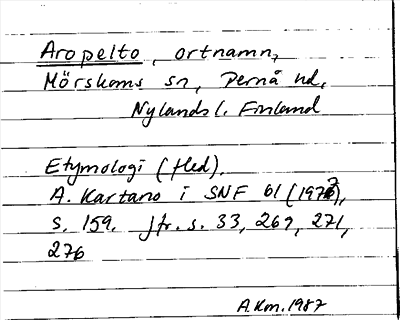 Aropelto, ortnamn,
Mörskoms sn, Pernå hd,
Nylands l. Finland
Etymologi (fled).
A. Kartano i SNF 61 (1977),
s. 159. Jfr. s. 33, 269, 271,
276
A.Km. 1987